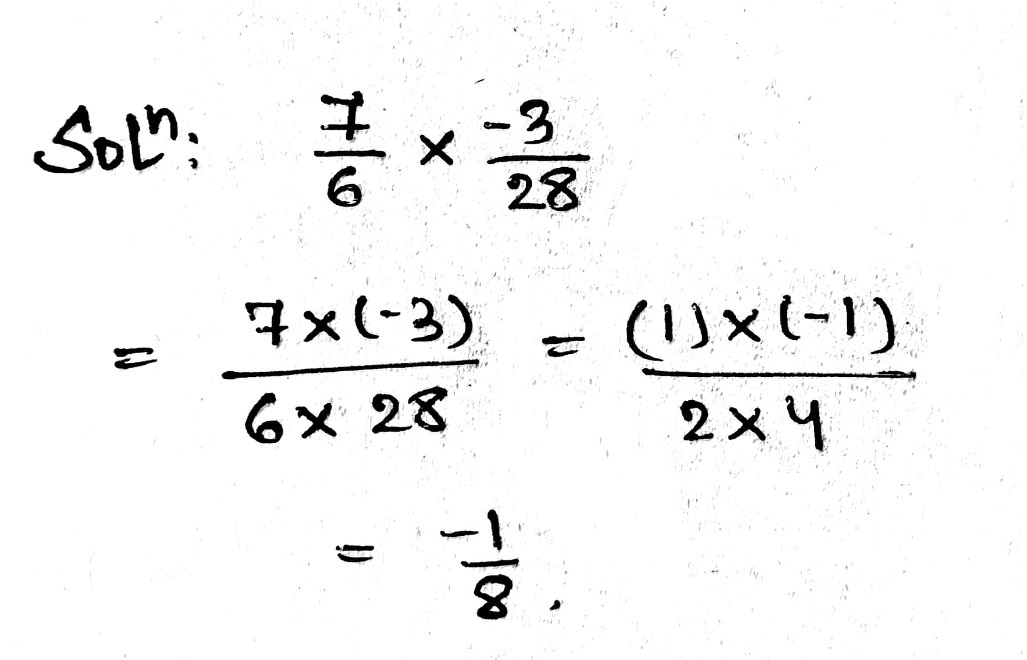 Solⁿ: 7/6 × -3/28
= 7×(-3)/6×28 = (1)×(-1)/2×4
= -1/8.